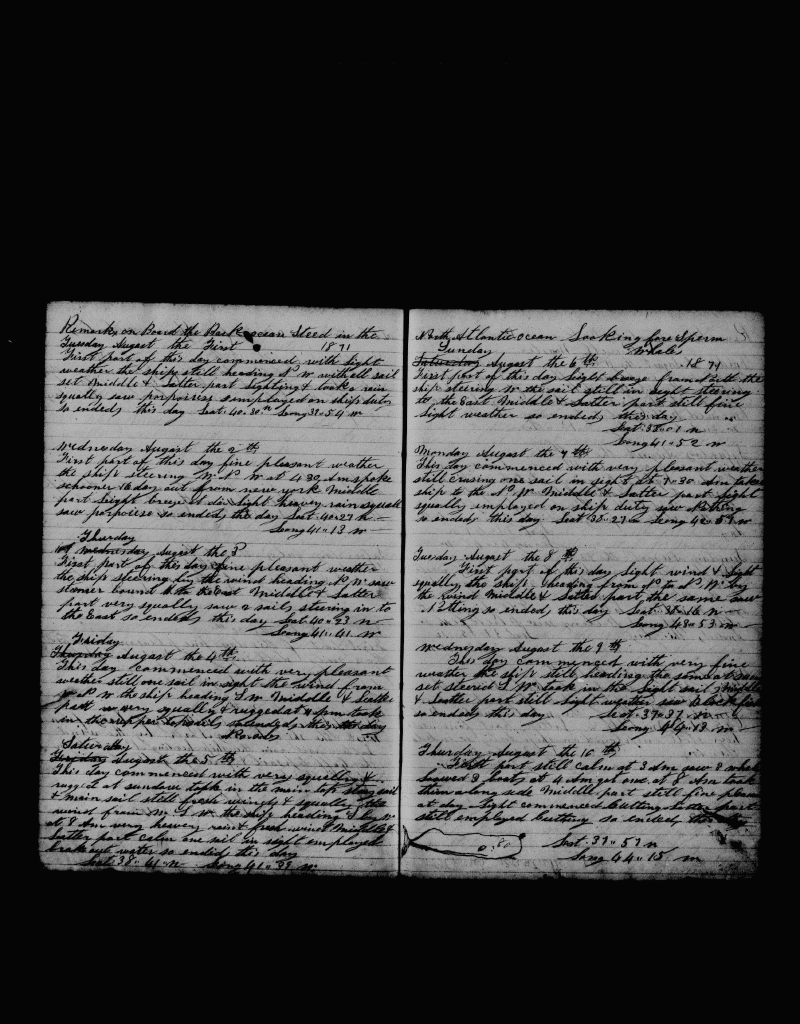 Remarks on Board the Bark ocean Steed in the
Tuesday August the First 1871
First part of this day commenced with light
weather the ship still heading N W with all sail
set Middle & Latter part lighting & looks rain
squally saw porpoises employed on ship duty
so ended this day Lat. 40.30 n Long 39.54 w
Wednesday August the 2th
First part of this day fine pleasant weather
the ship steering W N W at 4.30 Am spoke
schooner 18 day out from new york Middle
part Leight breeze heavy rain squall
saw porpoise so ended the day Lat 40.27 n
Long 41.13 w
Thursday
Wednesday August the 3
First part of this day fine pleasant weather
the ship steering by the wind heading N W saw
steamer bound to the East Middle & Latter
part very squally saw 2 sails steering in to
the East so ended this day Lat 40.23 n
Long 41.41 w
Friday
Thursday August the 4th
This day commenced with very pleasant
weather still one sail in sight the wind from
W N W the ship heading S W Middle & Latter
part very squally & rugged at 4 Pm took
in the upper topsails so ended this day
Saturday
Friday August the 5th
This day commenced with very squally &
rugged at sundave took in the main top stay sail
& main sail still fresh winds & squally the
wind from W S W the ship heading S by W
at 8 Am very heavy rain & fresh wind Middle &
Latter part calm one sail in sight employed
breakout water so ended this day
Lat 38.41 n Long 41.39 w
North Atlantic ocean Looking fore Sperm
Sunday Whale
Saturday August the 6th 1871
First part of this day light breeze from South the
ship steering W the sail still in sight steering
to the East Middle & Latter part still fine
light weather so ended this day
Lat 38.01 n
Long 41.52 w
Monday August the 7th
This day commenced with very pleasant weather
still crusing one sail in sight at 7.30 Am take
ship to the N W Middle & Latter part light
squally employed on ship duty saw nothing
so ended this day Lat 38.27 n Long 42.57 w
Tuesday August the 8th
First part of this day light wind & light
squally the ship heading from N to N W by
the wind Middle & Latter part the same saw
nothing so ended this day Lat 38.16 n
Long 43.53 w
Wednesday August the 9th
This day commenced with very fine
weather the ship still heading the same all sail
set steered S W took in the light sail Middle
& Latter part still light weather saw
so ended this day Lat 37.37 n
Long 44.13 w
Thursday August the 10th
First part still calm at 3 Am saw 2 whale
lowerd 3 boats at 4 Am got one at 8 Am took
them along side Middle part still fine pleasant
at day light commenced cutting latter part
still employed cutting so ended this day
o. 80 Lat 37.57 n
Long 44.15 w